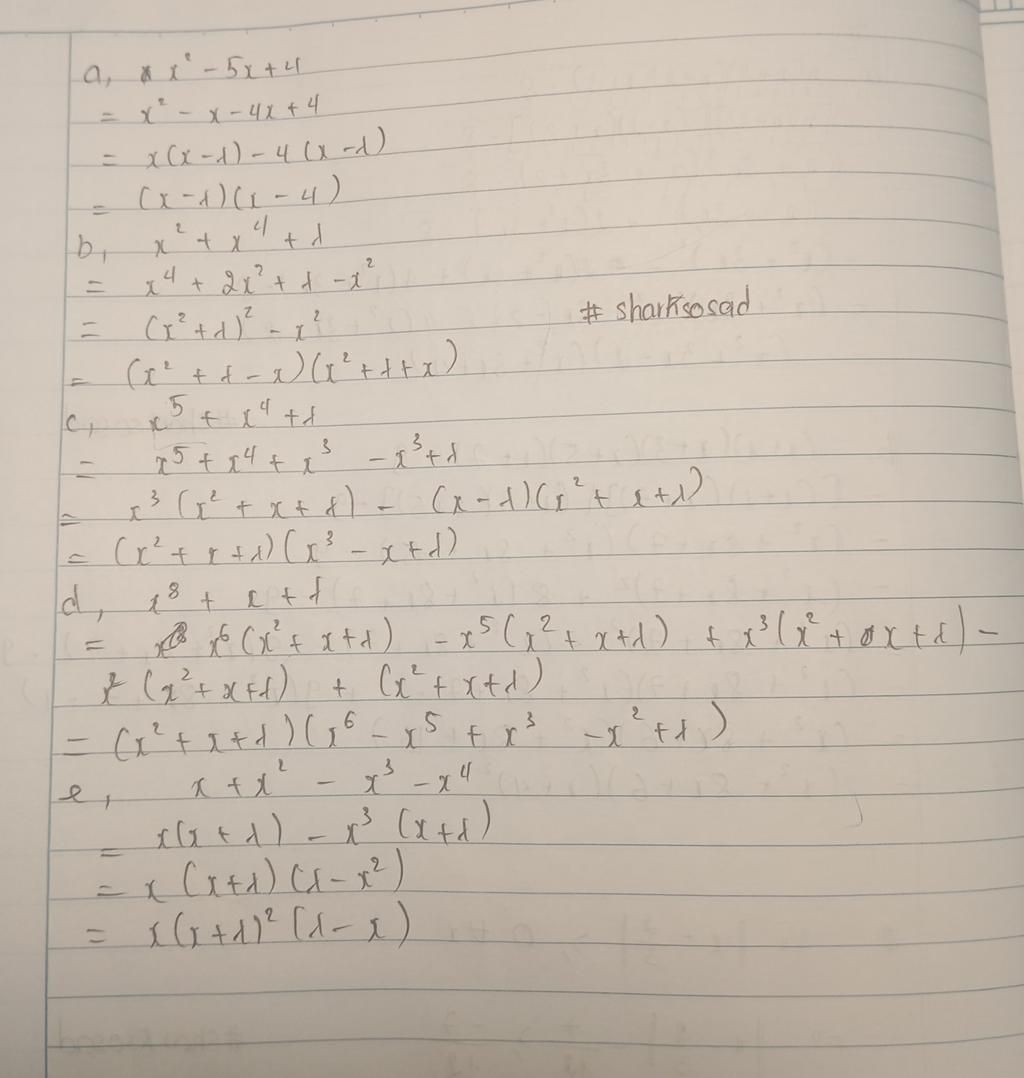 a, x² - 5x + 4
= x² - x - 4x + 4
= x(x - 1) - 4(x - 1)
= (x - 1)(x - 4)
b, x² + x⁴ + 1
= x⁴ + 2x² + 1 - x²
= (x² + 1)² - x²
# sharksosad
= (x² + 1 - x)(x² + 1 + x)
c, x⁵ + x⁴ + 1
= x⁵ + x⁴ + x³ - x³ + 1
= x³(x² + x + 1) - (x - 1)(x² + x + 1)
= (x² + x + 1)(x³ - x + 1)
d, x⁸ + x + 1
= x⁶(x² + x + 1) - x⁵(x² + x + 1) + x³(x² + x + 1) -
x²(x² + x + 1) + (x² + x + 1)
= (x² + x + 1)(x⁶ - x⁵ + x³ - x² + 1)
e, x + x² - x³ - x⁴
= x(x + 1) - x³(x + 1)
= x(x + 1)(1 - x²)
= x(x + 1)²(1 - x)